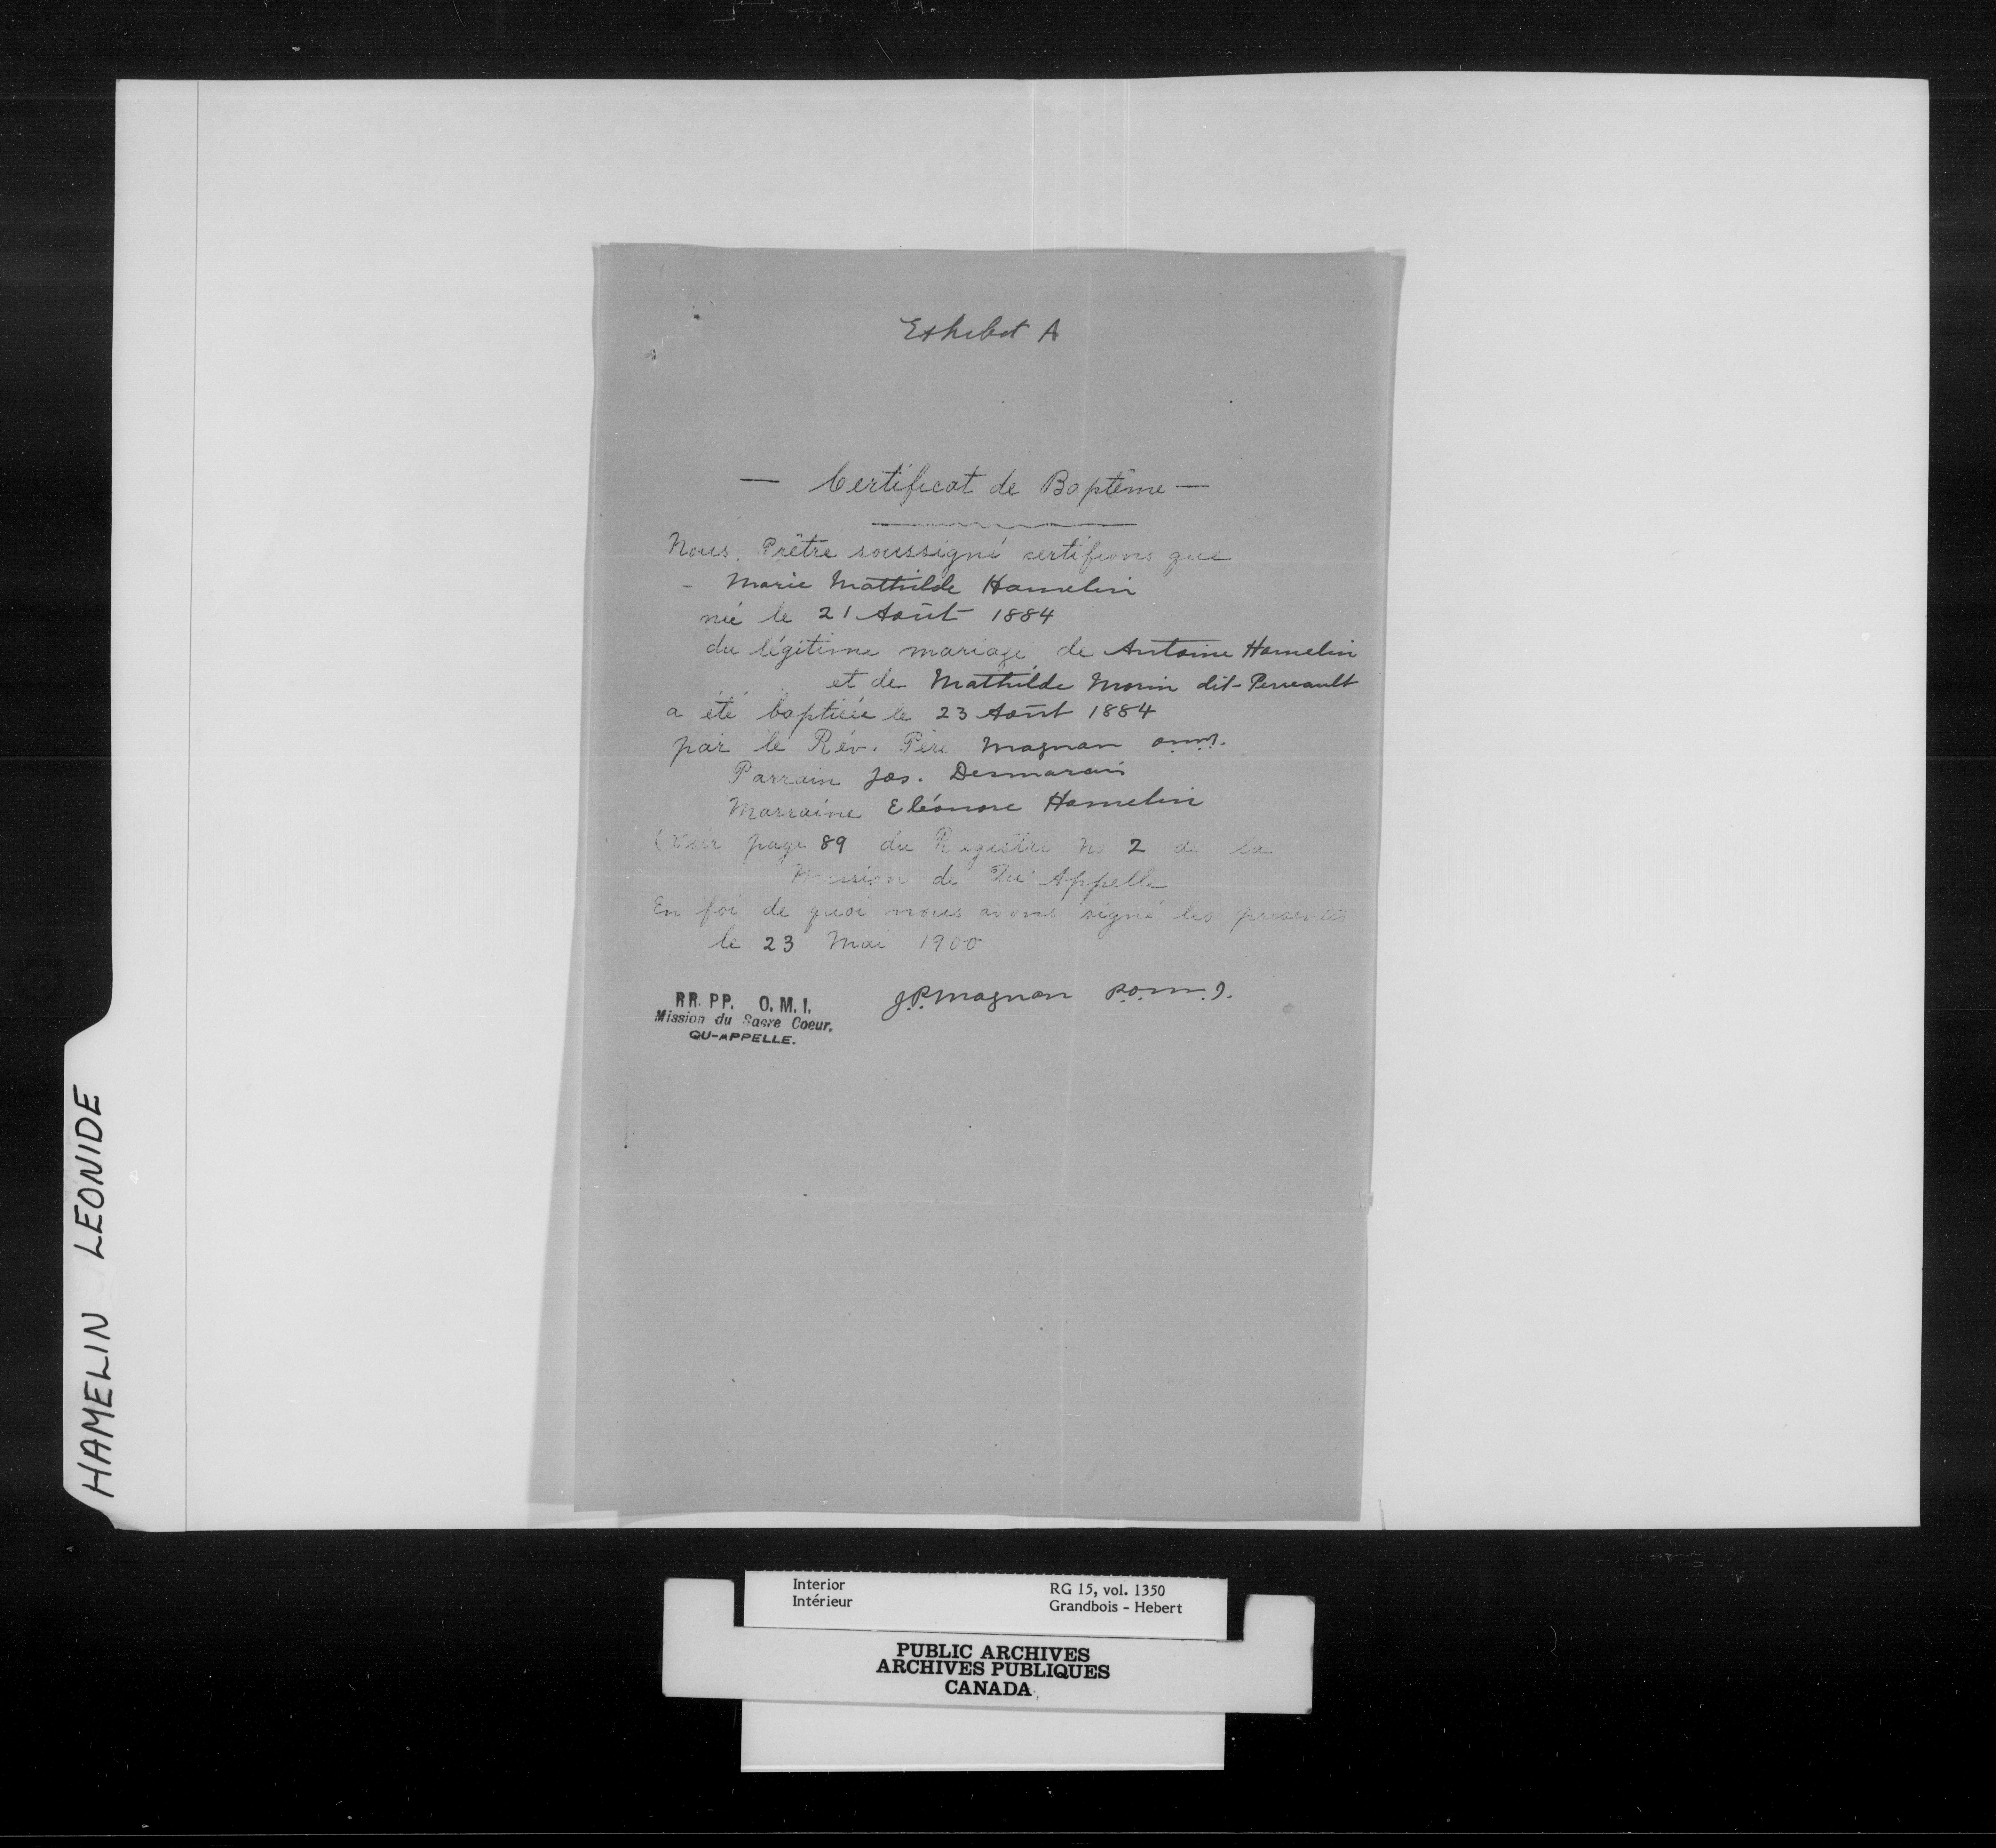 Exhibit A
— Certificat de Baptême —
Nous, Prêtre soussigné certifions que
- Marie Mathilde Hamelin
née le 21 Août 1884
du légitime mariage de Antoine Hamelin
et de Mathilde Morin dit-Perreault
a été baptisée le 23 Août 1884
par le Rév. Père Magnan o.m.i.
Parrain Jos. Desmarais
Marraine Eléonore Hamelin
(Voir page 89 du Registre No 2 de la
Mission de Qu'Appelle
En foi de quoi nous avons signé les présentes
le 23 Mai 1900
J.P. Magnan P.o.m.I.
RR. PP. O. M. I.
Mission du Sacre Coeur,
QU-APPELLE.
HAMELIN LEONIDE
Interior
Intérieur
RG 15, vol. 1350
Grandbois - Hebert
PUBLIC ARCHIVES
ARCHIVES PUBLIQUES
CANADA